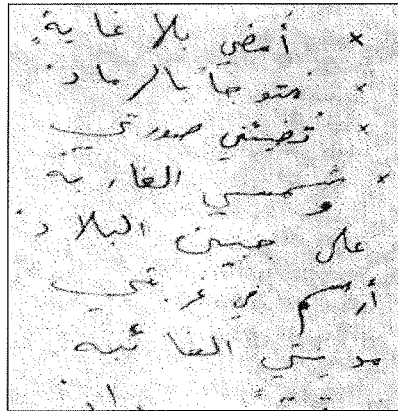 × أمضي بلا غاية
× متوجا بالرماد
× تضيئني صورتي
× وشمسي الغاربة
على جبين البلاد
أرسم في غربتي
مدينتي الغائبة